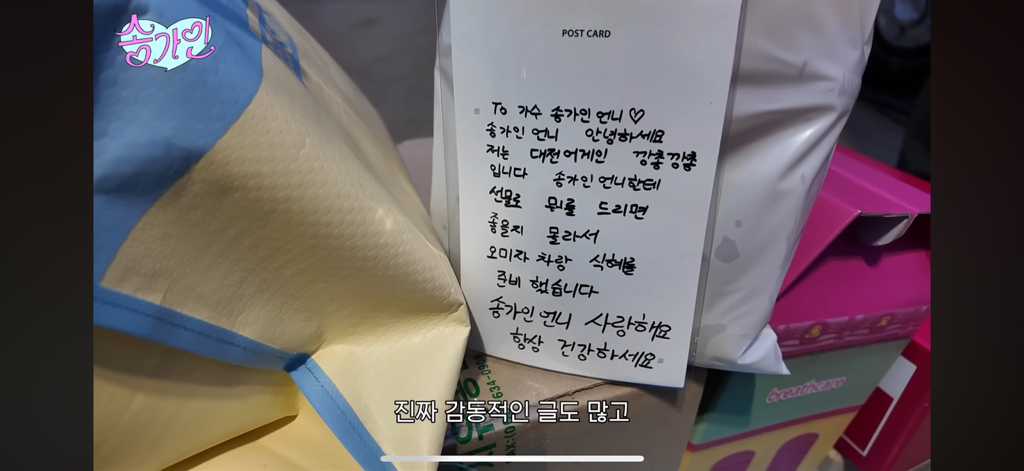 송가인
POST CARD
To 가수 송가인 언니♡
송가인 언니 안녕하세요
저는 대전어게인 깡총깡총
입니다 송가인 언니한테
선물로 뭐를 드리면
좋을지 몰라서
오미자 차랑 식혜를
준비 했습니다
송가인 언니 사랑해요
항상 건강하세요
breathcare
진짜 감동적인 글도 많고